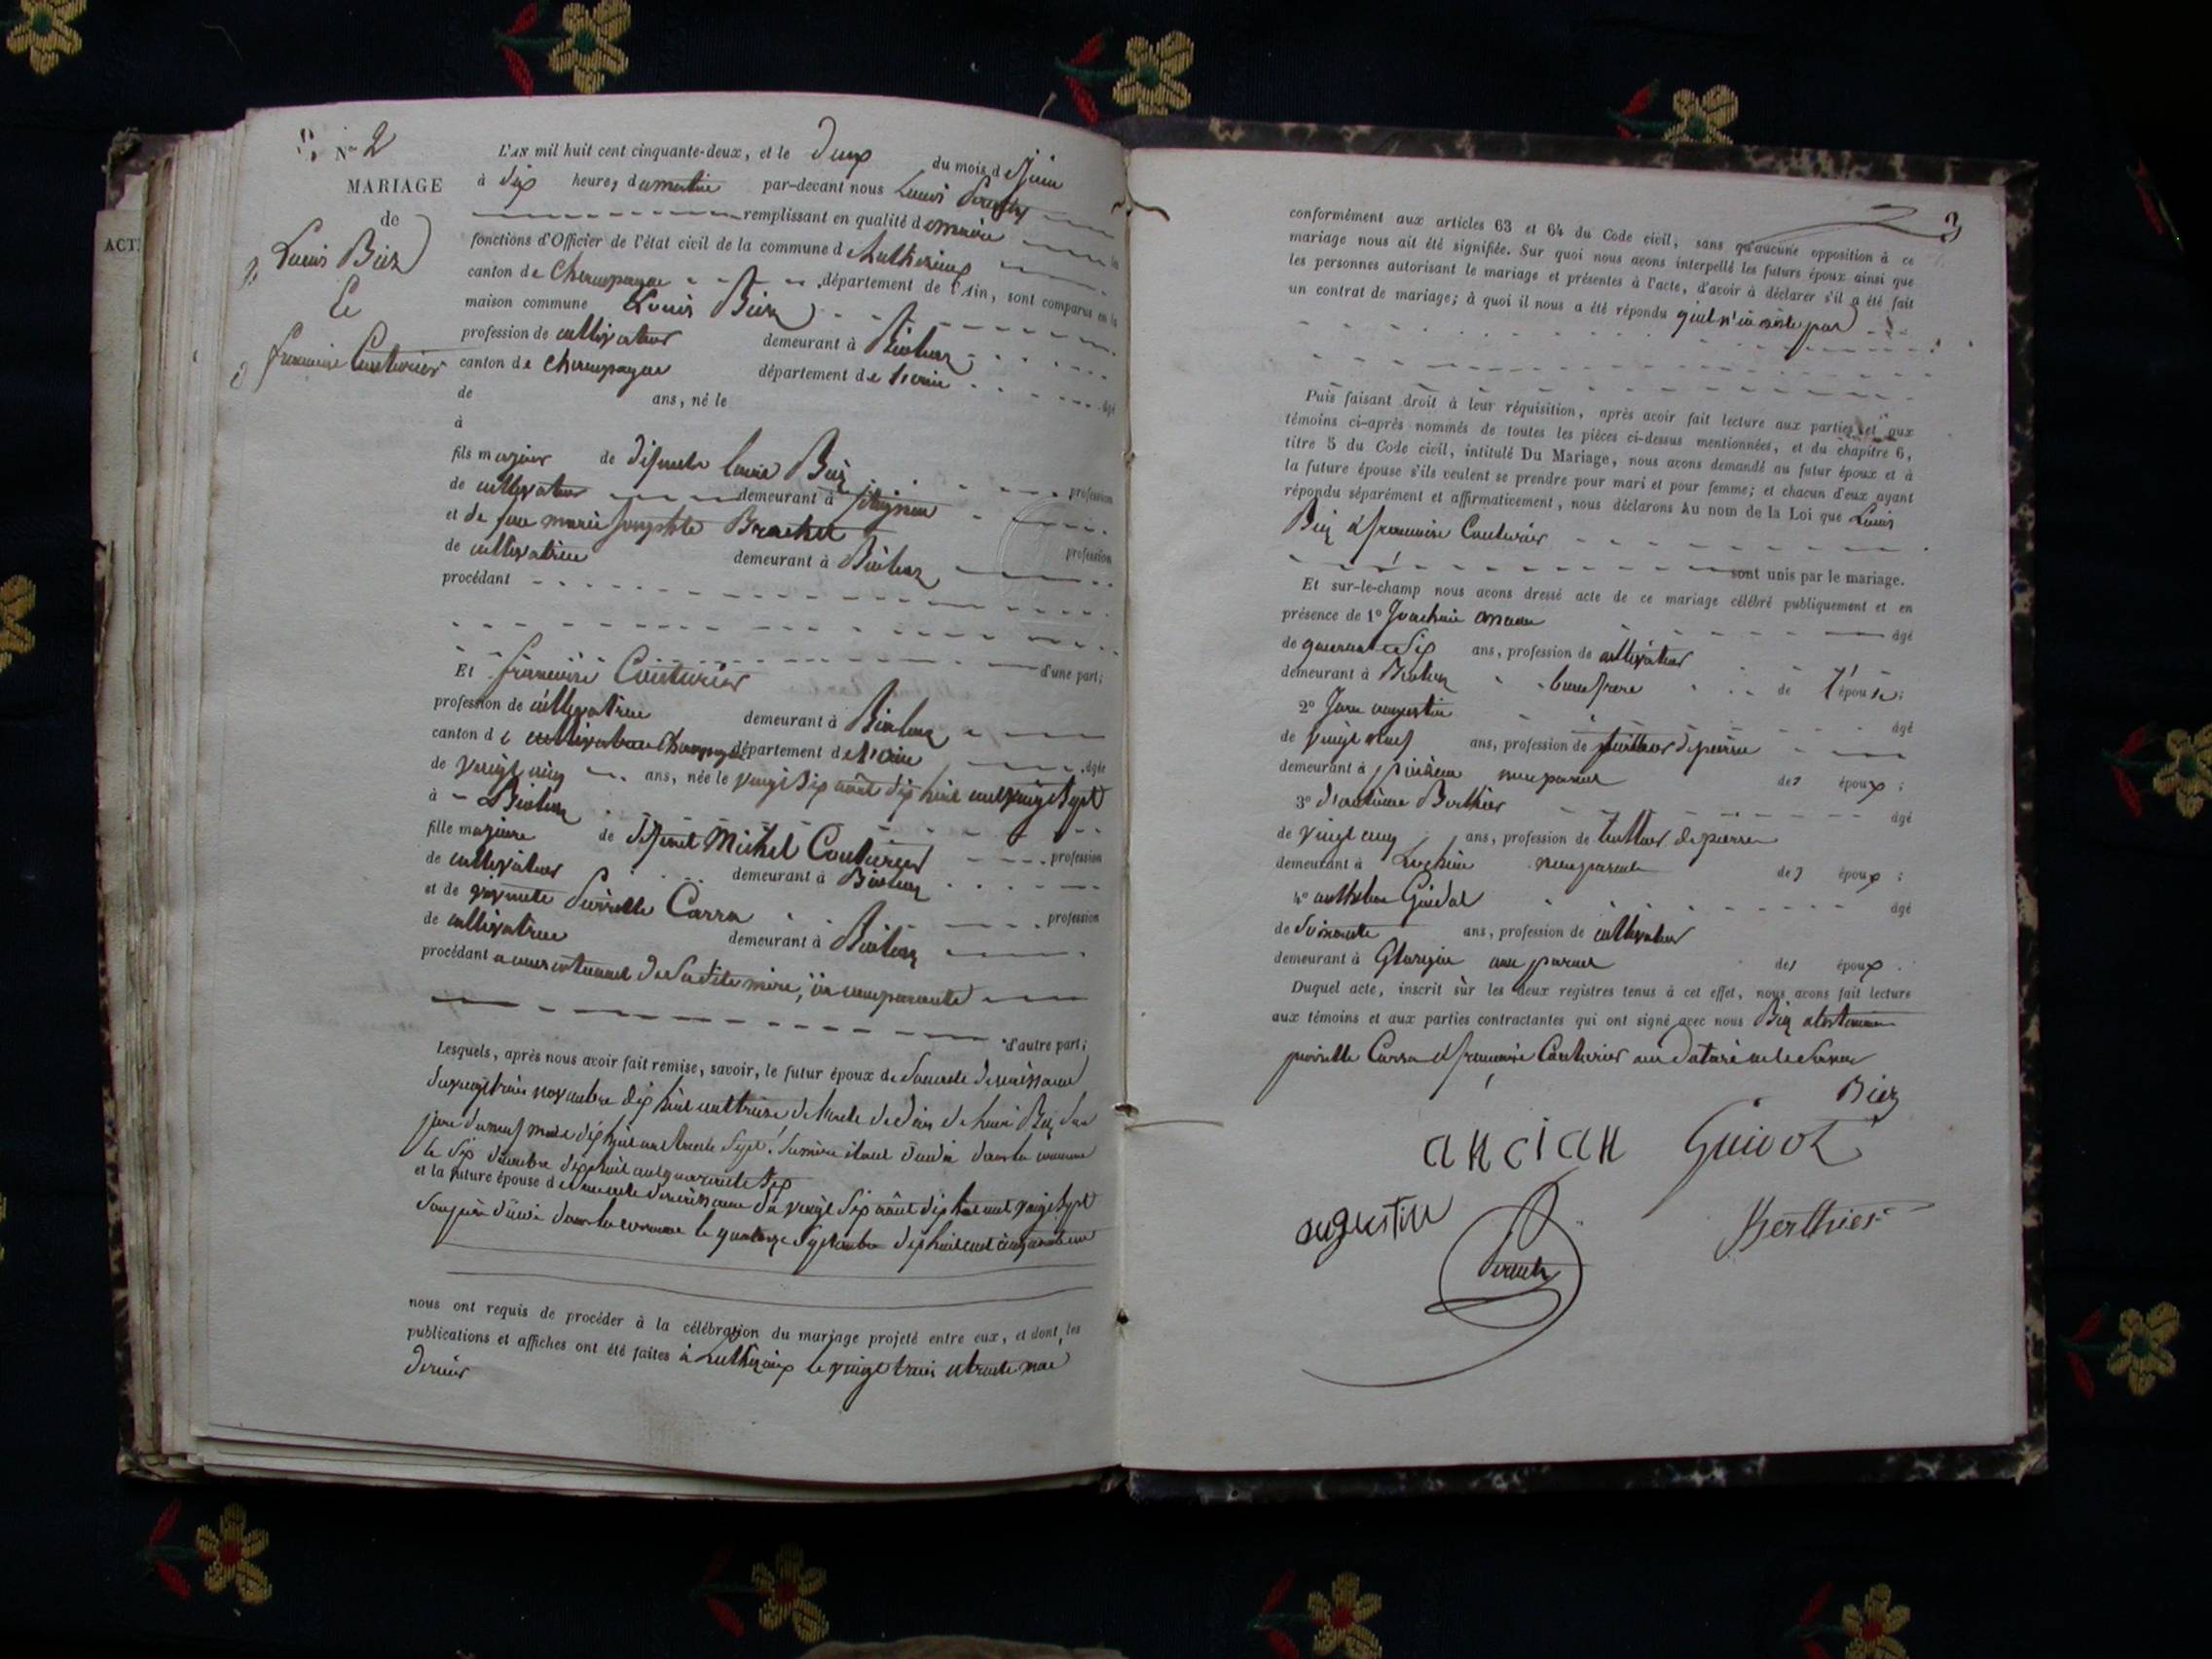 N° 2
MARIAGE
de
Louis Biez
Et
francoise Couturier
ACT
L'AN mil huit cent cinquante-deux, et le Deux du mois de Juin
à dix heures du matin par-devant nous Louis
remplissant en qualité de maire les
fonctions d'Officier de l'état civil de la commune de Luthezieux
canton de Champagne département de l'Ain, sont comparus en la
maison commune Louis Biez
profession de cultivateur demeurant à
canton de Champagne département de l'ain âgé
de ans, né le
à
fils majeur de défunt Louis Biez profession
de cultivateur demeurant à
et de feue marie josephte Brachet profession
de cultivatrice demeurant à
procédant
d'une part;
Et francoise Couturier
profession de cultivatrice demeurant à
canton de cultivatrice Champagne département de l'ain âgée
de vingt cinq ans, née le vingt six août dix huit cent vingt sept
à
fille majeure de défunt Michel Couturier profession
de cultivateur demeurant à
et de vivante Pierrette Carra profession
de cultivatrice demeurant à
procédant du consentement de sa dite mère, ici comparante
d'autre part;
Lesquels, après nous avoir fait remise, savoir, le futur époux de son acte de naissance
du vingt trois novembre dix huit cent treize, de l'acte de décès de Louis Biez son
père du neuf mai dix huit cent trente sept, sa mère étant décédée dans la commune
le dix décembre dix huit cent quarante six
et la future épouse de son acte de naissance du vingt six août dix huit cent vingt sept
son père décédé dans la commune le quatorze septembre dix huit cent cinquante un
nous ont requis de procéder à la célébration du mariage projeté entre eux, et dont les
publications et affiches ont été faites à Luthezieux le vingt trois et trente mai
dernier
3
conformément aux articles 63 et 64 du Code civil, sans qu'aucune opposition à ce
mariage nous ait été signifiée. Sur quoi nous avons interpellé les futurs époux ainsi que
les personnes autorisant le mariage et présentes à l'acte, d'avoir à déclarer s'il a été fait
un contrat de mariage; à quoi il nous a été répondu qu'il n'en existe pas
Puis faisant droit à leur réquisition, après avoir fait lecture aux parties et aux
témoins ci-après nommés de toutes les pièces ci-dessus mentionnées, et du chapitre 6,
titre 5 du Code civil, intitulé Du Mariage, nous avons demandé au futur époux et à
la future épouse s'ils veulent se prendre pour mari et pour femme; et chacun d'eux ayant
répondu séparément et affirmativement, nous déclarons Au nom de la Loi que Louis
Biez et francoise Couturier
sont unis par le mariage.
Et sur-le-champ nous avons dressé acte de ce mariage célébré publiquement et en
présence de 1° Joachim âgé
de quarante six ans, profession de cultivateur
demeurant à beau frere de l'épouse;
2° Jean augustin âgé
de vingt neuf ans, profession de tailleur de pierre
demeurant à non parent des époux;
3° Berthier âgé
de vingt cinq ans, profession de tailleur de pierre
demeurant à non parent des époux;
4° anthelme Guidot âgé
de soixante ans, profession de cultivateur
demeurant à non parent des époux.
Duquel acte, inscrit sur les deux registres tenus à cet effet, nous avons fait lecture
aux témoins et aux parties contractantes qui ont signé avec nous Biez et les témoins
pierrette Carra et francoise Couturier ont déclaré ne le savoir
Biez
ancian Guidot
augustin
Berthier